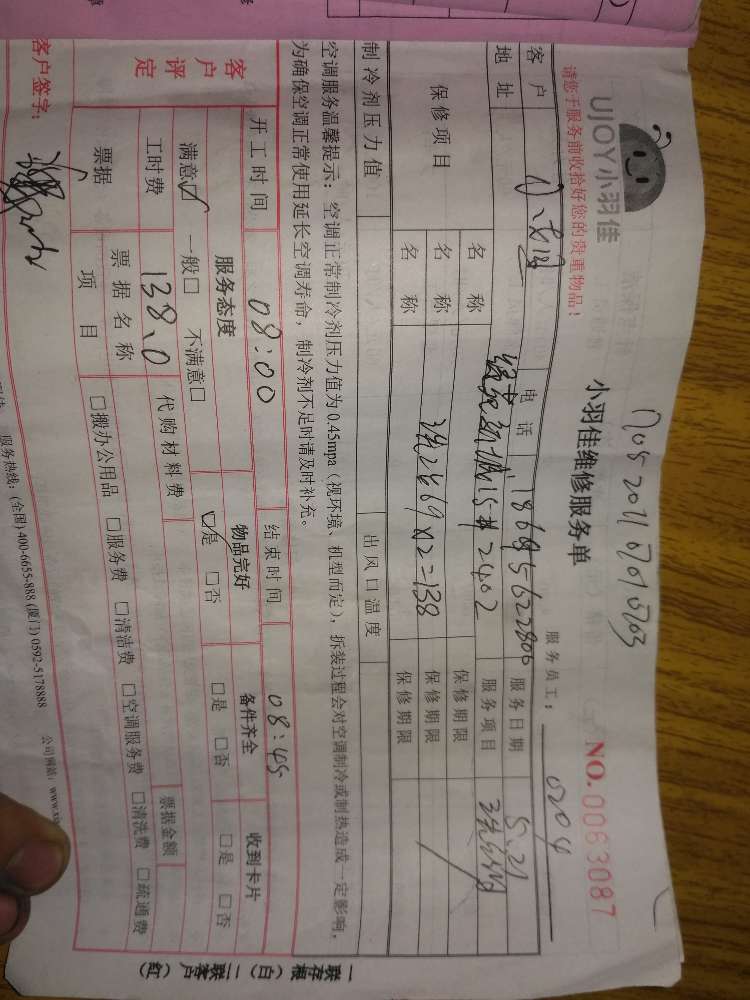 UJOY小羽佳
请您于服务前收拾好您的贵重物品！
小羽佳维修服务单
NO.0063087
服务员工： 0204
客户
电话 18695622806
服务日期 5.21
地址 15#2402
服务项目
保修项目
名称
保修期限
名称 洗2×69×2=138
保修期限
名称
保修期限
制冷剂压力值
出风口温度
空调服务温馨提示：空调正常制冷剂压力值为0.45mpa（视环境、机型而定），拆装过程会对空调制冷或制热造成一定影响，
为确保空调正常使用延长空调寿命，制冷剂不足时请及时补充。
开工时间 08:00
结束时间 08:45
客户评定
服务态度
物品完好
备件齐全
收到卡片
满意☑ 一般□ 不满意□
☑是 □否
□是 □否
□是 □否
工时费 138.0
代购材料费
票据金额
票据
票据名称
项目
□搬办公用品 □服务费 □清洁费 □空调服务费 □清洗费 □疏通费
客户签字：
服务热线：(全国) 400-6655-888 (厦门) 0592-5178888
公司网站：www.x
一联存根（白）二联客户（红）